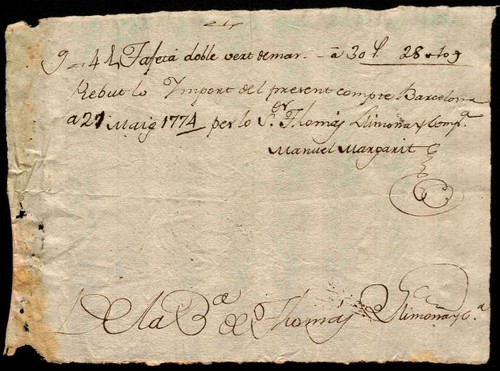 9 - 4 Tafetá doble vert de mar - a 30 28
Rebut lo Import del present compte Barcelona
a 21 Maig 1774 per lo Sr. Thomás Rimona y Compª
Manuel Margarit
De la Bª de Thomás Rimona y Cª